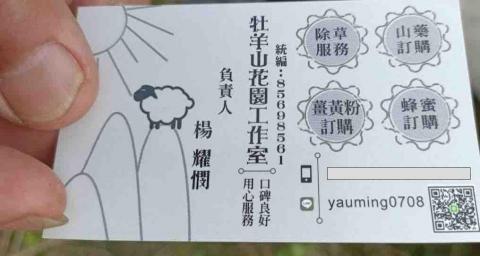 除草
服務
山藥
訂購
薑黃粉
訂購
蜂蜜
訂購
統編:85698561
牡羊山花園工作室
口碑良好
用心服務
負責人
楊耀憫
yauming0708